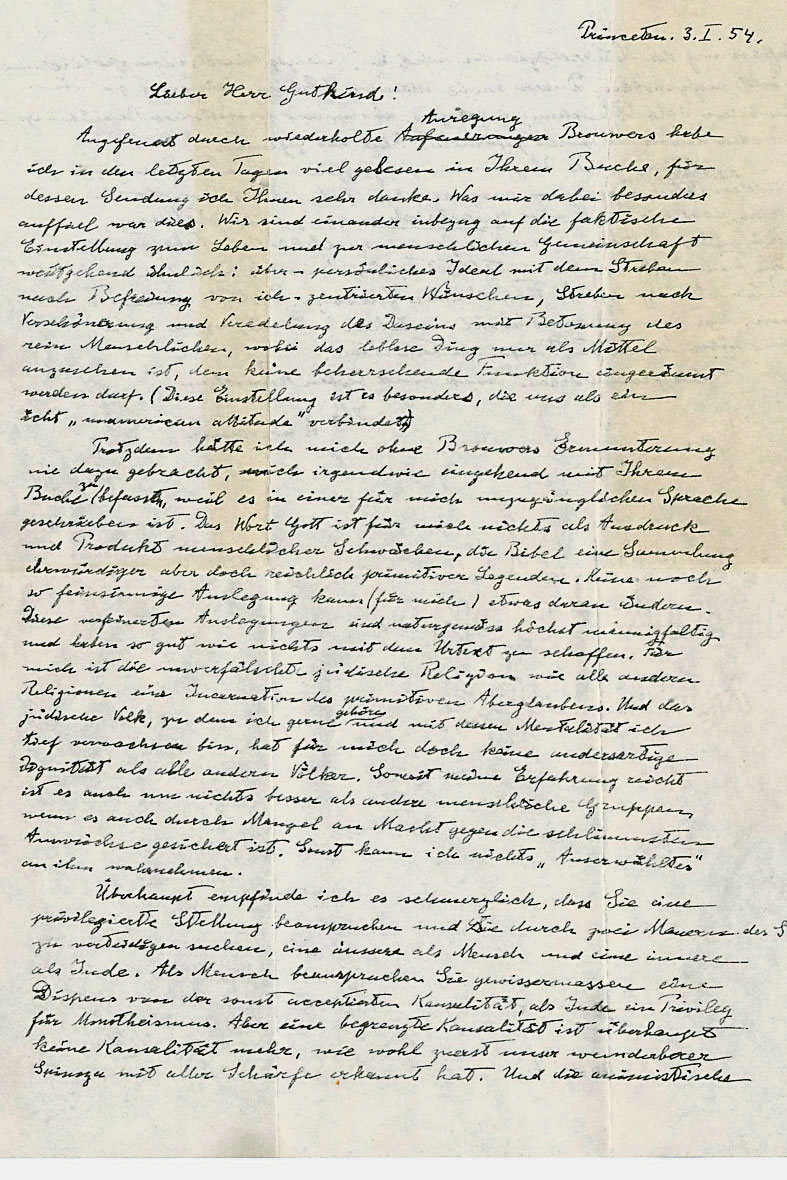 Princeton. 3. I. 54.
Lieber Herr Gutkind!
Anregung
Angefeuert durch wiederholte Brouwers habe
ich in den letzten Tagen viel gelesen in Ihrem Buche, für
dessen Sendung ich Ihnen sehr danke. Was mir dabei besonders
auffiel war dies. Wir sind einander inbezug auf die faktische
Einstellung zum Leben und zur menschlichen Gemeinschaft
weitgehend ähnlich: über-persönliches Ideal mit dem Streben
nach Befreiung von ich-zentrierten Wünschen, Streben nach
Verschönerung und Veredelung des Daseins mit Betonung des
rein Menschlichen, wobei das leblose Ding nur als Mittel
anzusehen ist, dem keine beherrschende Funktion eingeräumt
werden darf. (Diese Einstellung ist es besonders, die uns als ein
echt „unamerican attitude" verbindet.)
Trotzdem hätte ich mich ohne Brouwers Ermunterung
nie dazu gebracht, mich irgendwie eingehend mit Ihrem
Buche zu befassen, weil es in einer für mich unzugänglichen Sprache
geschrieben ist. Das Wort Gott ist für mich nichts als Ausdruck
und Produkt menschlicher Schwächen, die Bibel eine Sammlung
ehrwürdiger aber doch reichlich primitiver Legenden. Keine noch
so feinsinnige Auslegung kann (für mich) etwas daran ändern.
Diese verfeinerten Auslegungen sind naturgemäss höchst mannigfaltig
und haben so gut wie nichts mit dem Urtext zu schaffen. Für
mich ist die unverfälschte jüdische Religion wie alle anderen
Religionen eine Incarnation des primitiven Aberglaubens. Und das
jüdische Volk, zu dem ich gerne gehöre und mit dessen Mentalität ich
tief verwachsen bin, hat für mich doch keine andersartige
Dignität als alle anderen Völker. Soweit meine Erfahrung reicht
ist es auch um nichts besser als andere menschliche Gruppen,
wenn es auch durch Mangel an Macht gegen die schlimmsten
Auswüchse gesichert ist. Sonst kann ich nichts „Auserwähltes"
an ihm wahrnehmen.
Überhaupt empfinde ich es schmerzlich, dass Sie eine
privilegierte Stellung beanspruchen und sie durch zwei Mauern des S
zu verteidigen suchen, eine äussere als Mensch und eine innere
als Jude. Als Mensch beanspruchen Sie gewissermassen eine
Dispens von der sonst acceptierten Kausalität, als Jude ein Privileg
für Monotheismus. Aber eine begrenzte Kausalität ist überhaupt
keine Kausalität mehr, wie wohl zuerst unser wunderbarer
Spinoza mit aller Schärfe erkannt hat. Und die animistische